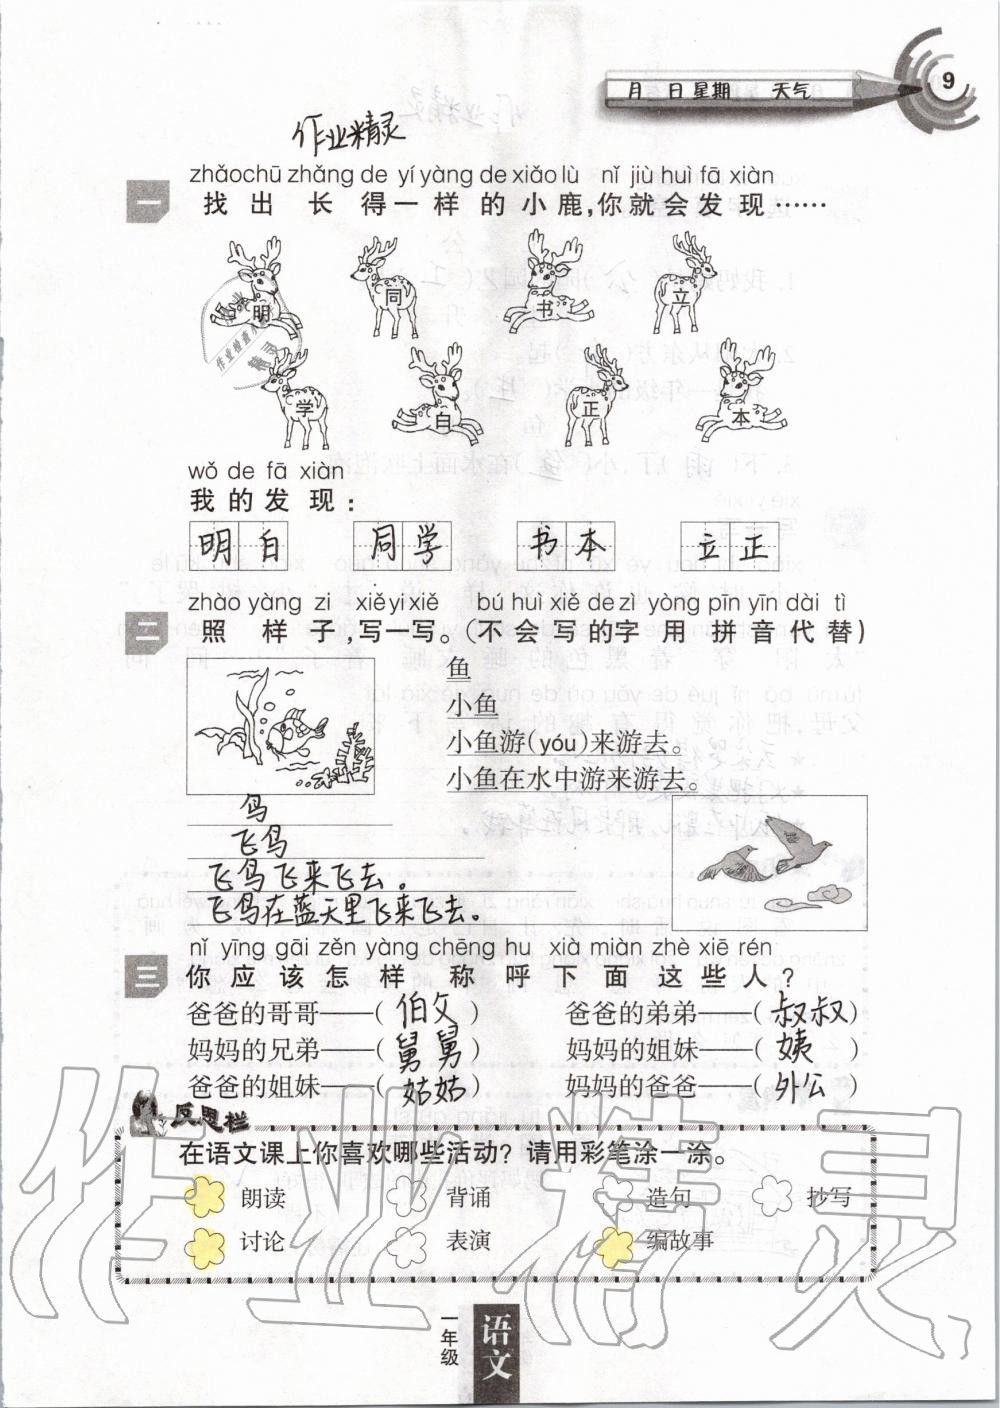 月 日 星期 天气
9
作业精灵
zhǎochū zhǎng de yí yàng de xiǎo lù nǐ jiù huì fā xiàn
一 找出长得一样的小鹿,你就会发现……
明 同 书 立
学 自 正 本
wǒ de fā xiàn
我的发现:
明自 同学 书本 立正
zhào yàng zi xiě yi xiě bú huì xiě de zì yòng pīn yīn dài tì
二 照样子,写一写。(不会写的字用拼音代替)
鱼
小鱼
小鱼游(yóu)来游去。
小鱼在水中游来游去。
鸟
飞鸟
飞鸟飞来飞去。
飞鸟在蓝天里飞来飞去。
nǐ yīng gāi zěn yàng chēng hu xià miàn zhè xiē rén
三 你应该怎样称呼下面这些人?
爸爸的哥哥——(伯父) 爸爸的弟弟——(叔叔)
妈妈的兄弟——(舅舅) 妈妈的姐妹——(姨)
爸爸的姐妹——(姑姑) 妈妈的爸爸——(外公)
反思栏
在语文课上你喜欢哪些活动?请用彩笔涂一涂。
朗读 背诵 造句 抄写
讨论 表演 编故事
作业精灵
一年级 语文